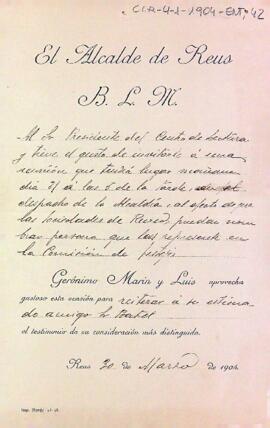 CLR-4-1-1904-ENT, 42
El Alcalde de Reus
B. L. M.
Al Sr. Presidente del Centro de Lectura
y tiene el gusto de invitarle á una
reunión que tendrá lugar mañana
día 31 á las 6 de la tarde en el
despacho de la Alcaldía, al objeto de que
las Sociedades de Recreo, puedan nom
brar persona que las represente en
la Comisión de festejos
Gerónimo Marin y Luis aprovecha
gustoso esta ocasión para reiterar á su estima
do amigo Sr
el testimonio de su consideración más distinguida.
Reus 30 de Marzo de 1904